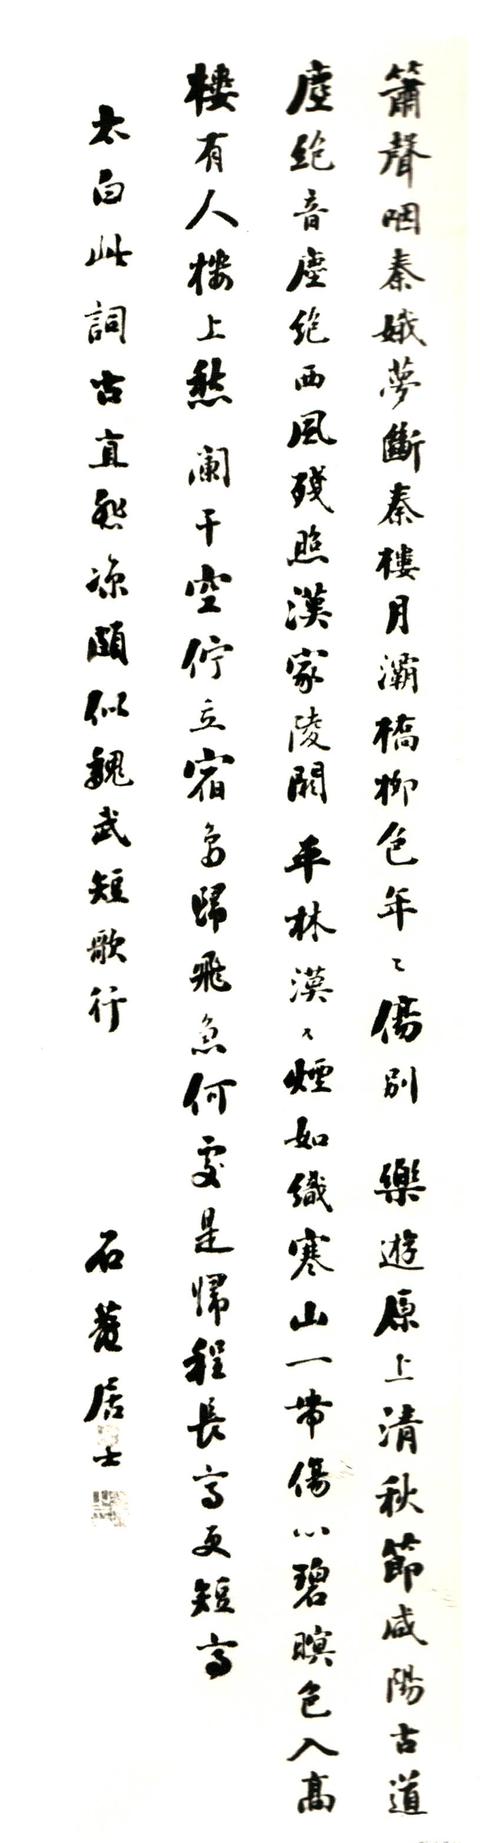 簫聲咽秦娥夢斷秦樓月灞橋柳色年〻傷別 樂遊原上清秋節咸陽古道
塵絶音塵絶西風殘照漢家陵闕 平林漠〻煙如織寒山一帶傷心碧暝色入高
樓有人樓上愁 闌干空佇立宿鳥歸飛急何處是歸程長亭更短亭
太白此詞古直悲涼頗似魏武短歌行
石菴居士